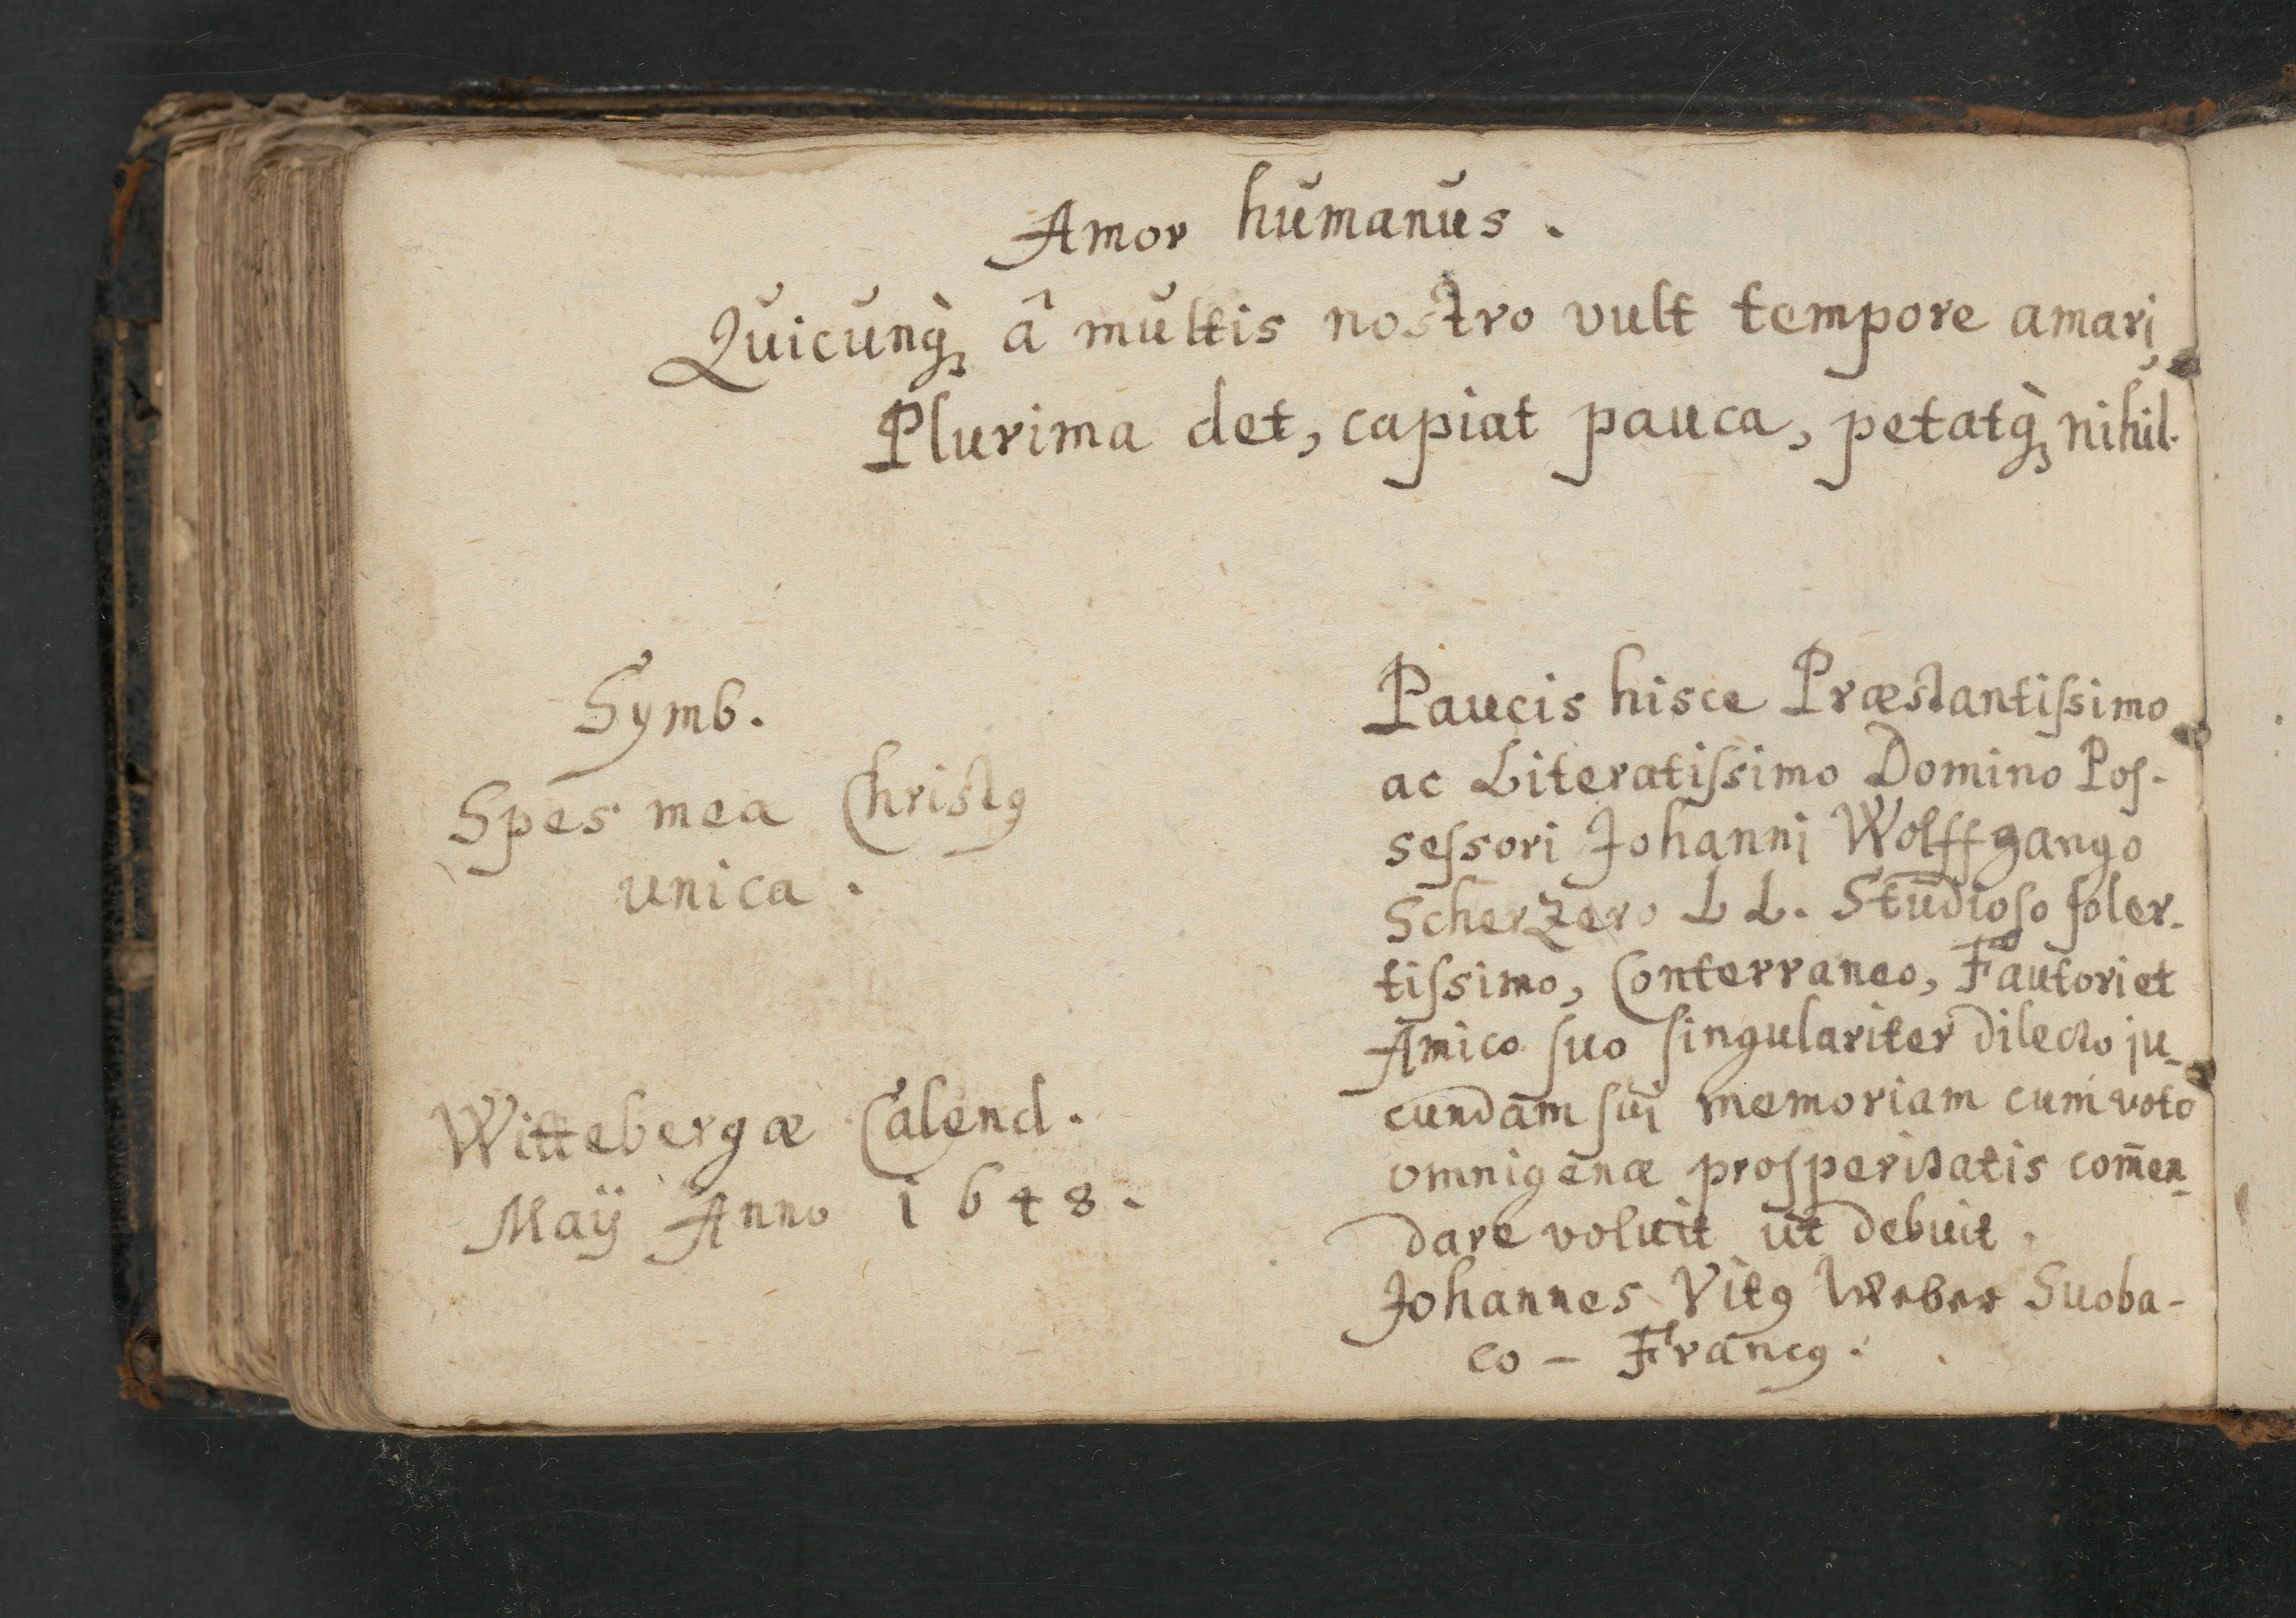 Amor humanus.
Quicunq́; â multis nostro vult tempore amari,
Plurima det, capiat pauca, petatq́; nihil.
Symb.
Spes mea Christꝰ
unica.
Wittebergæ Calend.
Maÿ Anno 1648.
Paucis hisce Præstantiſsimo
ac Literatiſsimo Domino Poſ-
seſsori Johanni Wolffgango
Scherzero L L. Studioſo ſoler-
tiſsimo, Conterraneo, Fautori et
Amico ſuo ſingulariter dilecto ju-
cundam ſui memoriam cum voto
omnigenæ proſperitatis com̄en-
dare voluit ut debuit.
Johannes Vitꝰ Weber Suoba-
co - Francꝰ.